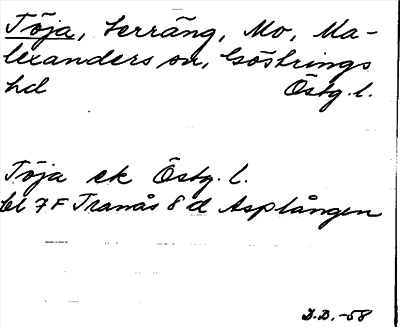 Töja, terräng, Mo, Ma-
lexanders sn, Göstrings
hd Östg.l.
Töja ek Östg.l.
bl 7F Tranås 8d Asplången
D.D.-58